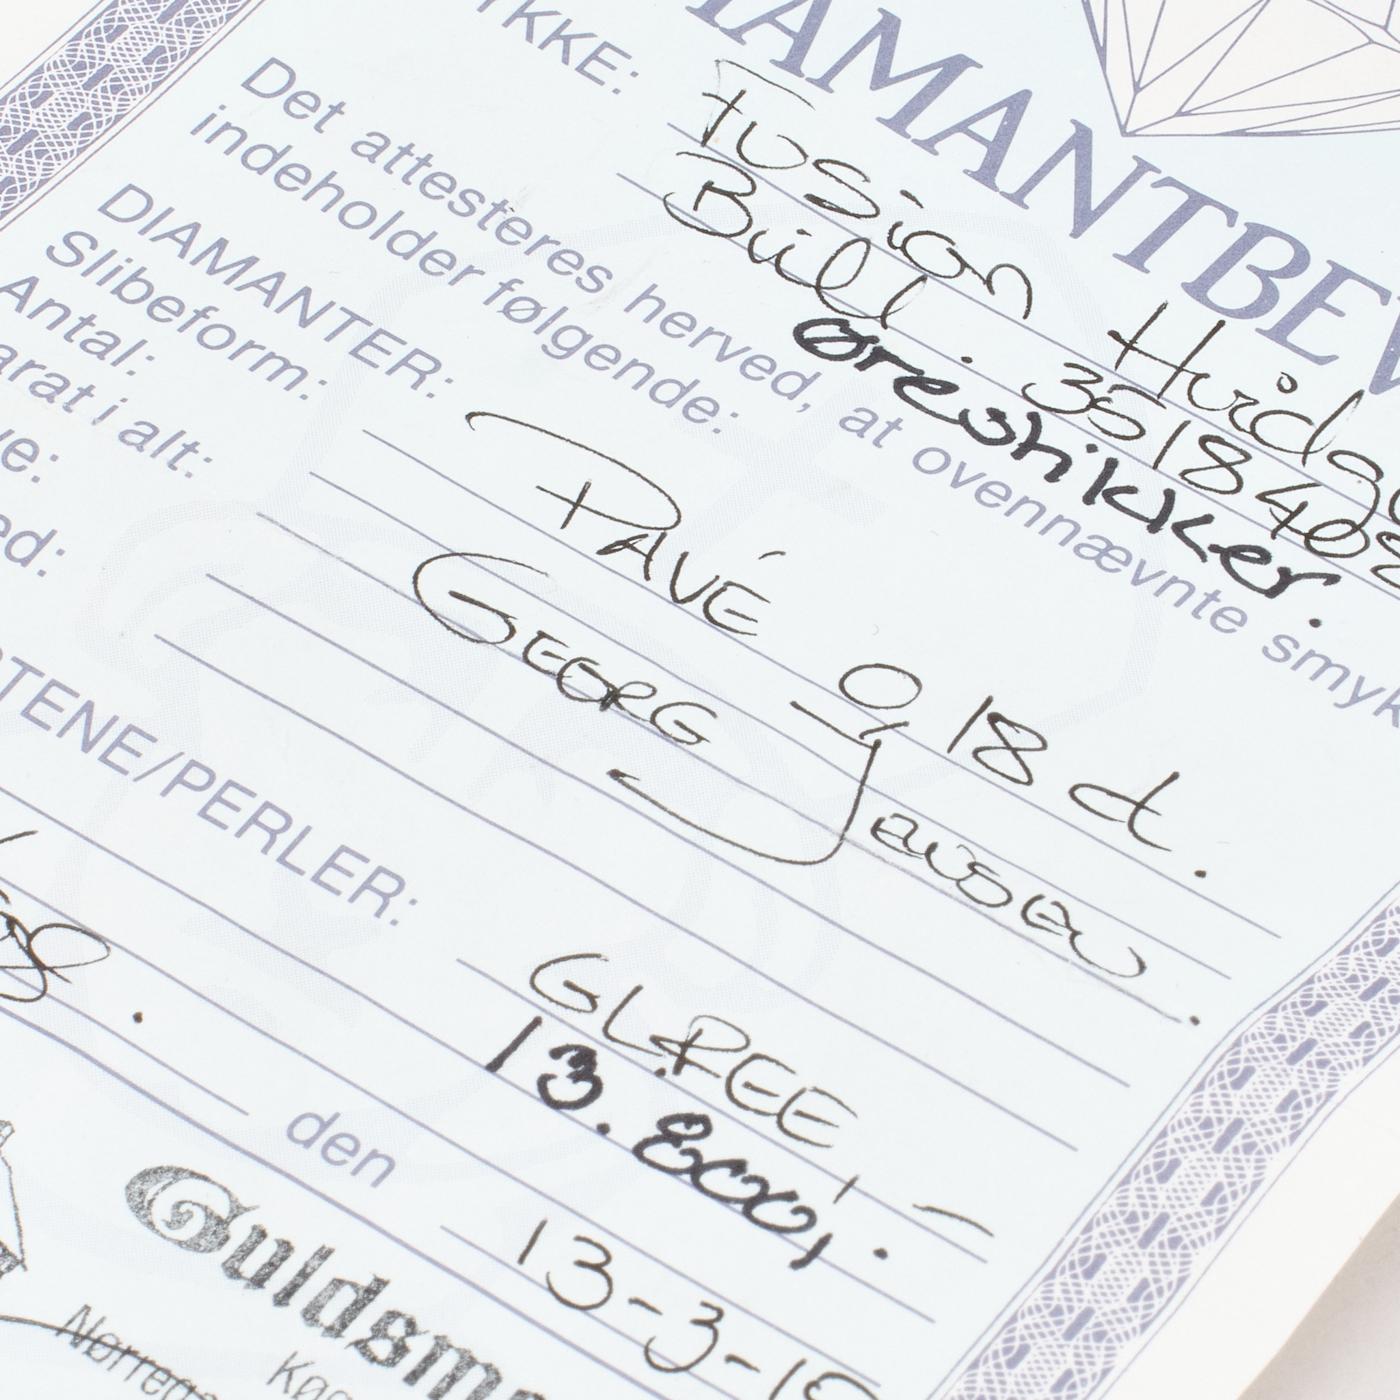 DIAMANTBEV
YKKE: Fusion Hvidg
Bull. 3518408
øreshikker.
Det attesteres herved, at ovennævnte smyk
indeholder følgende:
DIAMANTER:
Slibeform: PAVÉ 0,18 ct.
Antal: GEORG Jensen.
arat i alt:
e:
ed:
STENE/PERLER:
GLREE
13.800,-
den 13-3-19
Guldsme
Nørrega
Køg